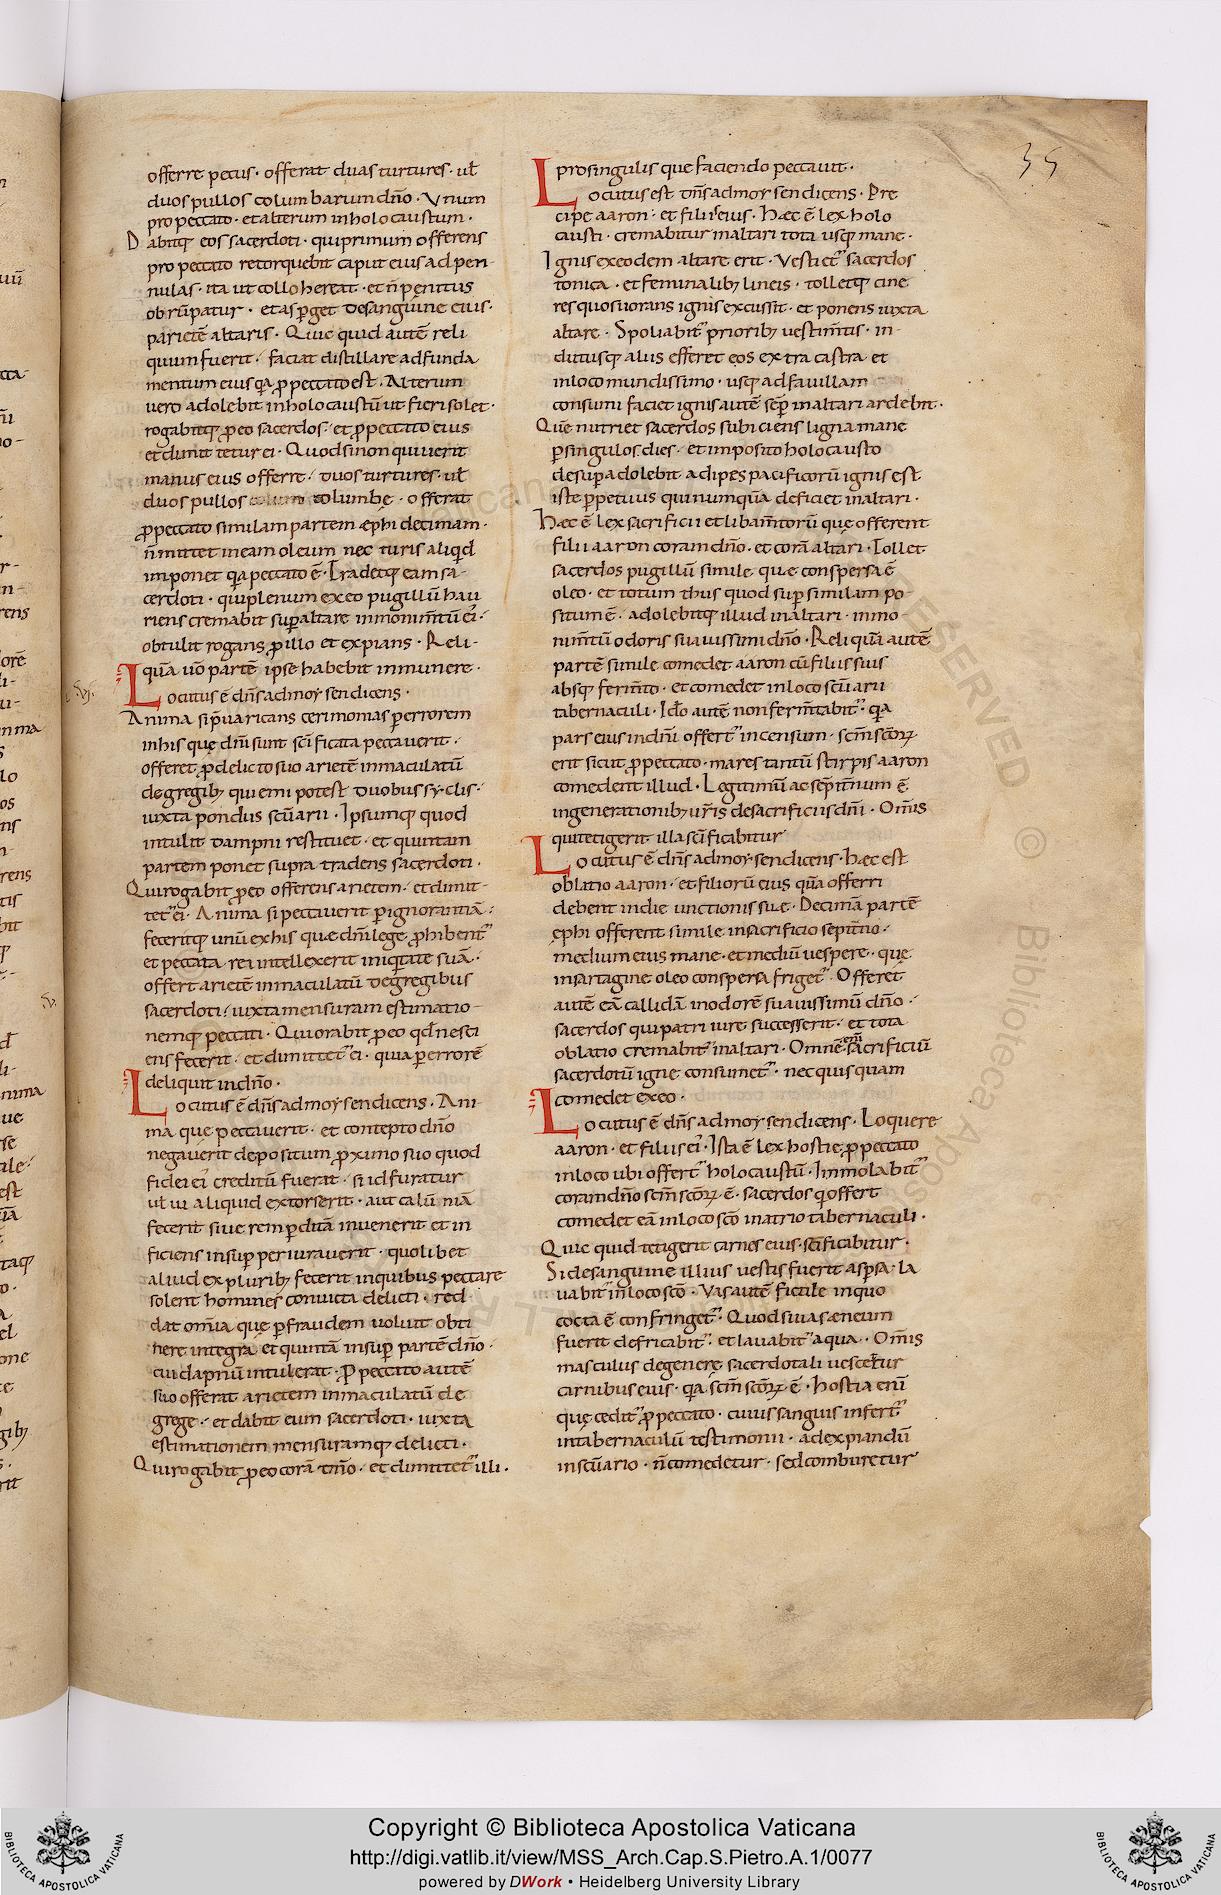 35
offerre pecus · offerat duas turtures · ut
duos pullos columbarum dño · Unum
pro peccato · et alterum in holocaustum ·
Dabitq; eos sacerdoti · qui primum offerens
pro peccato retorquebit caput eius ad pen-
nulas · ita ut collo hereat · et ñ penitus
obrũpatur · et asp̃get de sanguine eius ·
parietẽ altaris · Quic quid autẽ reli
quum fuerit · faciat distillare ad funda
mentum eius q̃a p̱ peccato est · Alterum
vero adolebit in holocaustũ ut fieri solet ·
rogabitq; p̱ eo sacerdos · et p̱ peccato eius
et dimittetur ei · Quod si non quiverit
manus eius offerre · duos turtures · ut
duos pullos columbę · offerat
p̱ peccato similam partem æphi decimam ·
ñ mittet in eam oleum nec turis aliq̃d
imponet q̃a peccato ẽ · Tradetq; eam sa-
cerdoti · qui plenum ex eo pugillũ hau
riens cremabit sup̱ altare in monimñtũ ei ·
obtulit rogans p̱ illo et expians · Reli-
quã uõ partẽ ipse habebit in munere ·
Locutus ẽ dñs ad moysen dicens ·
Anima si p̃uaricans cerimonias p̱ errorem
in his quę dñi sunt sc̃ificata peccaverit ·
offeret p̱ delicto suo arietẽ inmaculatũ
de gregib; qui emi potest duobus syclis ·
iuxta pondus sc̃uarii · Ipsumq; quod
intulit dampni restituet · et quintam
partem ponet supra tradens sacerdoti ·
Qui rogabit p̱ eo offerens arietem · et dimit-
tet̃ ei · Anima si peccaverit p̱ ignorantiã ·
feceritq; unũ ex his quæ dñi lege p̱hibent̃
et peccata rea intellexerit iniq̃tate suã ·
offert arietẽ inmaculatũ de gregibus
sacerdoti · iuxta mensuram estimatio-
nemq; peccati · Qui orabit p̱ eo qd̃ nesci
ens fecerit · et dimittet̃ ei · quia p̱ errorẽ
deliquit in dño ·
Locutus ẽ dñs ad moysen dicens · Ani-
ma que peccaverit · et contepto dño
negaverit depositum p̱ximo suo quod
fidei ei creditũ fuerat · si id furatur
ut vi aliquid extorserit · aut calũniã
fecerit sive rem p̱ditã invenerit et in
ficiens insup̱ periuraverit · quolibet
aliud ex plurib; fecerit in quibus peccare
solent homines convicta delicti · red
dat om̃ia que p̱ fraudem voluit obti
nere integra et quintã insup̱ partẽ dño ·
cui dapnũ intulerat · P̱ peccato autẽ
suo offerat arietem inmaculatũ de
grege · et dabit eum sacerdoti · iuxta
estimationem mensuramq; delicti ·
Qui rogabit p̱ eo corã dño · et dimittet̃ illi ·
pro singulis que faciendo peccavit ·
Locutus est dñs ad moysen dicens · Pre
cipe aaron · et filiis eius · Hæc ẽ lex holo
causti · cremabitur in altari tota usq; mane ·
Ignis ex eodem altare erit · Vestiet̃ sacerdos
tonica · et feminalib; lineis · tolletq; cine
res quos vorans ignis excussit · et ponens iuxta
altare · Spoliabit̃ priorib; vestimñtis · in-
dutusq; aliis efferet eos extra castra et
in loco mundissimo · usq; ad favillam
consumi faciet ignis autẽ sep̱ in altari ardebit ·
Quẽ nutriet sacerdos subiciens ligna mane
p̱ singulos dies · et imposito holocausto
desup̱ adolebit adipes pacificorũ ignis est
iste p̱petuus qui numquã deficiet in altari ·
Hæc ẽ lex sacrificii et libamñtorũ quę offerent
filii aaron coram dño · et corã altari · Tollet
sacerdos pugillũ simile que conspersa ẽ
oleo · et totum thus quod sup̱ similam po
situm ẽ · adolebitq; illud in altari · in mo
nimñtũ odoris suavissimi dño · Reliquã autẽ
partẽ simile comedet aaron cũ filiis suis
absq; fermñto · et comedet in loco sc̃uarii
tabernaculi · Ido autẽ non fermñtabit̃ · q̃a
pars eius in dñi offert̃ incensum · sc̃m sc̃orꝝ
erit sicut p̱ peccato · mares tantũ stirpis aaron
comedent illud · Legitimũ ac sep̱itñum ẽ
in generationib; ur̃is de sacrificiis dñi · Om̃is
qui tetigerit illa sc̃ificabitur
Locutus ẽ dñs ad moysen dicens · Hæc est
oblatio aaron · et filiorũ eius quã offerri
debent in die unctionis suæ · Decimã partẽ
ephi offerent simile in sacrificio sepitño ·
medium eius mane · et mediũ vespere · que
in sartagine oleo conspersa friget̃ · Offeret
autẽ eã callidã in odorẽ suavissimũ dño ·
sacerdos qui patri iure successerit · et tota
oblatio cremabit̃ in altari · Omne eñi sacrificiũ
sacerdotũ igne consumet̃ · nec quisquam
comedet ex eo ·
Locutus ẽ dñs ad moysen dicens · Loquere
aaron · et filiis ei · Ista ẽ lex hostie p̱ peccato
in loco ubi offert̃ holocaustũ · Immolabit̃
coram dño sc̃m sc̃orꝝ ẽ · sacerdos q̃ offert
comedet eã in loco sc̃o in atrio tabernaculi ·
Quic quid tetigerit carnes eius · sc̃ificabitur ·
Si de sanguine illius vestis fuerit asp̱sa · la
vabit̃ in loco sc̃o · Vas autẽ fictile in quo
cocta ẽ confringet̃ · Quod si vas æneum
fuerit defricabit̃ · et lavabit̃ aqua · Om̃is
masculus de genere sacerdotali vescetur
carnibus eius · q̃a sc̃m sc̃orꝝ ẽ · Hostia eñi
que cedit̃ p̱ peccato · cuius sanguis infert̃
in tabernaculũ testimonii · ad expiandũ
in sc̃uario · ñ comedetur · sed comburetur
Copyright © Biblioteca Apostolica Vaticana
http://digi.vatlib.it/view/MSS_Arch.Cap.S.Pietro.A.1/0077
powered by DWork • Heidelberg University Library
BIBLIOTECA APOSTOLICA VATICANA
BIBLIOTECA APOSTOLICA VATICANA